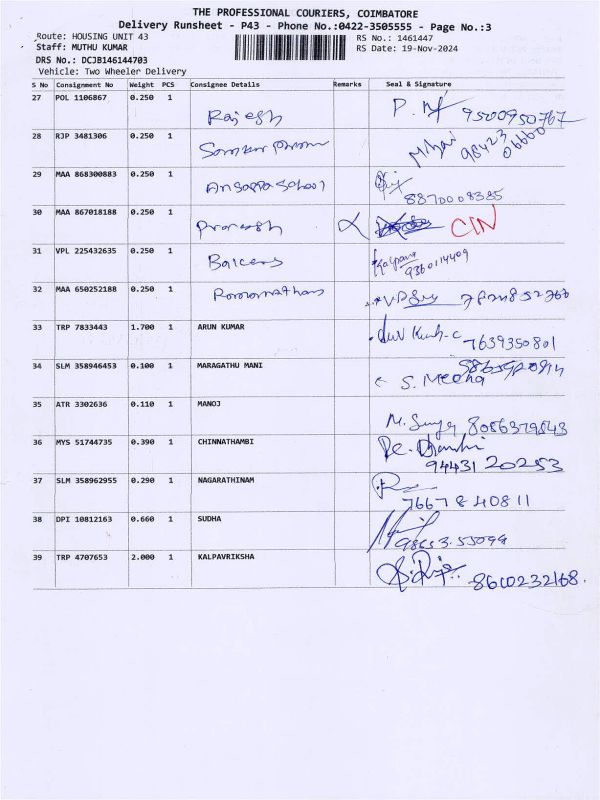 THE PROFESSIONAL COURIERS, COIMBATORE
Delivery Runsheet - P43 - Phone No.:0422-3505555 - Page No.:3
Route: HOUSING UNIT 43
RS No.: 1461447
Staff: MUTHU KUMAR
RS Date: 19-Nov-2024
DRS No.: DCJB146144703
Vehicle: Two Wheeler Delivery
S No Consignment No Weight PCS Consignee Details Remarks Seal & Signature
27 POL 1106867 0.250 1 Rajesh 9500950767
28 RJP 3481306 0.250 1 98423 06660
29 MAA 868300883 0.250 1 8870008385
30 MAA 867018188 0.250 1 CIN
31 VPL 225432635 0.250 1 Kalpana 9360114409
32 MAA 650252188 0.250 1
33 TRP 7833443 1.700 1 ARUN KUMAR 7639350801
34 SLM 358946453 0.100 1 MARAGATHU MANI S. Meena
35 ATR 3302636 0.110 1 MANOJ
36 MYS 51744735 0.390 1 CHINNATHAMBI 94431 20253
37 SLM 358962955 0.290 1 NAGARATHINAM 7667840811
38 DPI 10812163 0.660 1 SUDHA
39 TRP 4707653 2.000 1 KALPAVRIKSHA 8610232168.